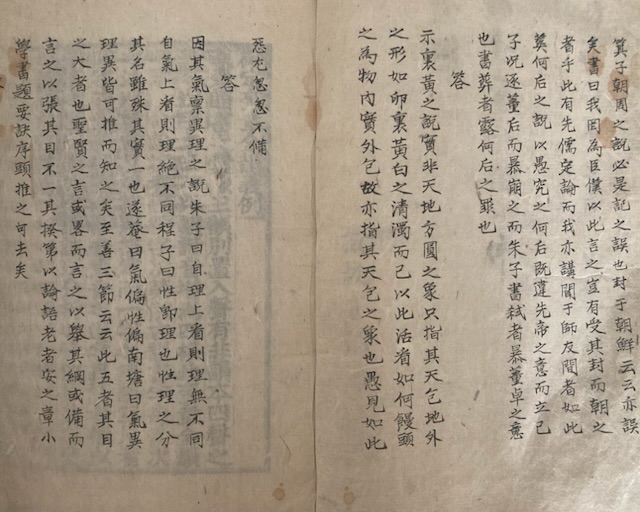 箕子朝周之說必是記之誤也封于朝鮮云云亦誤
矣書曰我罔為臣僕以此言之豈有受其封而朝之
者乎此有先儒定論而我亦講聞于師友間者如此
莫何后之說以愚究之何后既違先帝之意而立己
子況逐董后而暴崩之而朱子書弒者慕董卓之意
也書葬者露何后之罪也
答
示裏黃之說實非天地方圓之象只指其天包地外
之形如卵裏黃白之清濁而已以此活看如何饅頭
之為物內實外包故亦指其天包之象也愚見如此
悉尤忽忽不備
答
因其氣稟異理之說朱子曰自理上看則理無不同
自氣上看則理絶不同程子曰性卽理也性理之分
其名雖殊其實一也遂菴曰氣偏性偏南塘曰氣異
理異皆可推而知之矣至善三節云云此五者其目
之大者也聖賢之言或畧而言之以舉其綱或備而
言之以張其目不一其揆第以論語老者安之章小
學書題要訣序頭推之可去矣